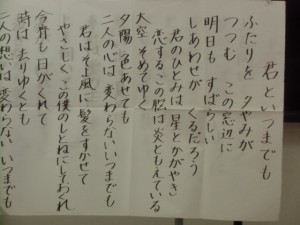 君といつまでも
ふたりを 夕やみが
つつむ この窓辺に
明日も すばらしい
しあわせが くるだろう
君のひとみは 星とかがやき
恋する この胸は 炎ともえている
大空 そめてゆく
夕陽 色あせても
二人の心は 変わらないいつまでも
君はそよ風に 髪をすかせて
やさしく この僕のしとねにしておくれ
今宵も 日がくれて
時は 去りゆくとも
二人の想いは 変わらない いつまでも